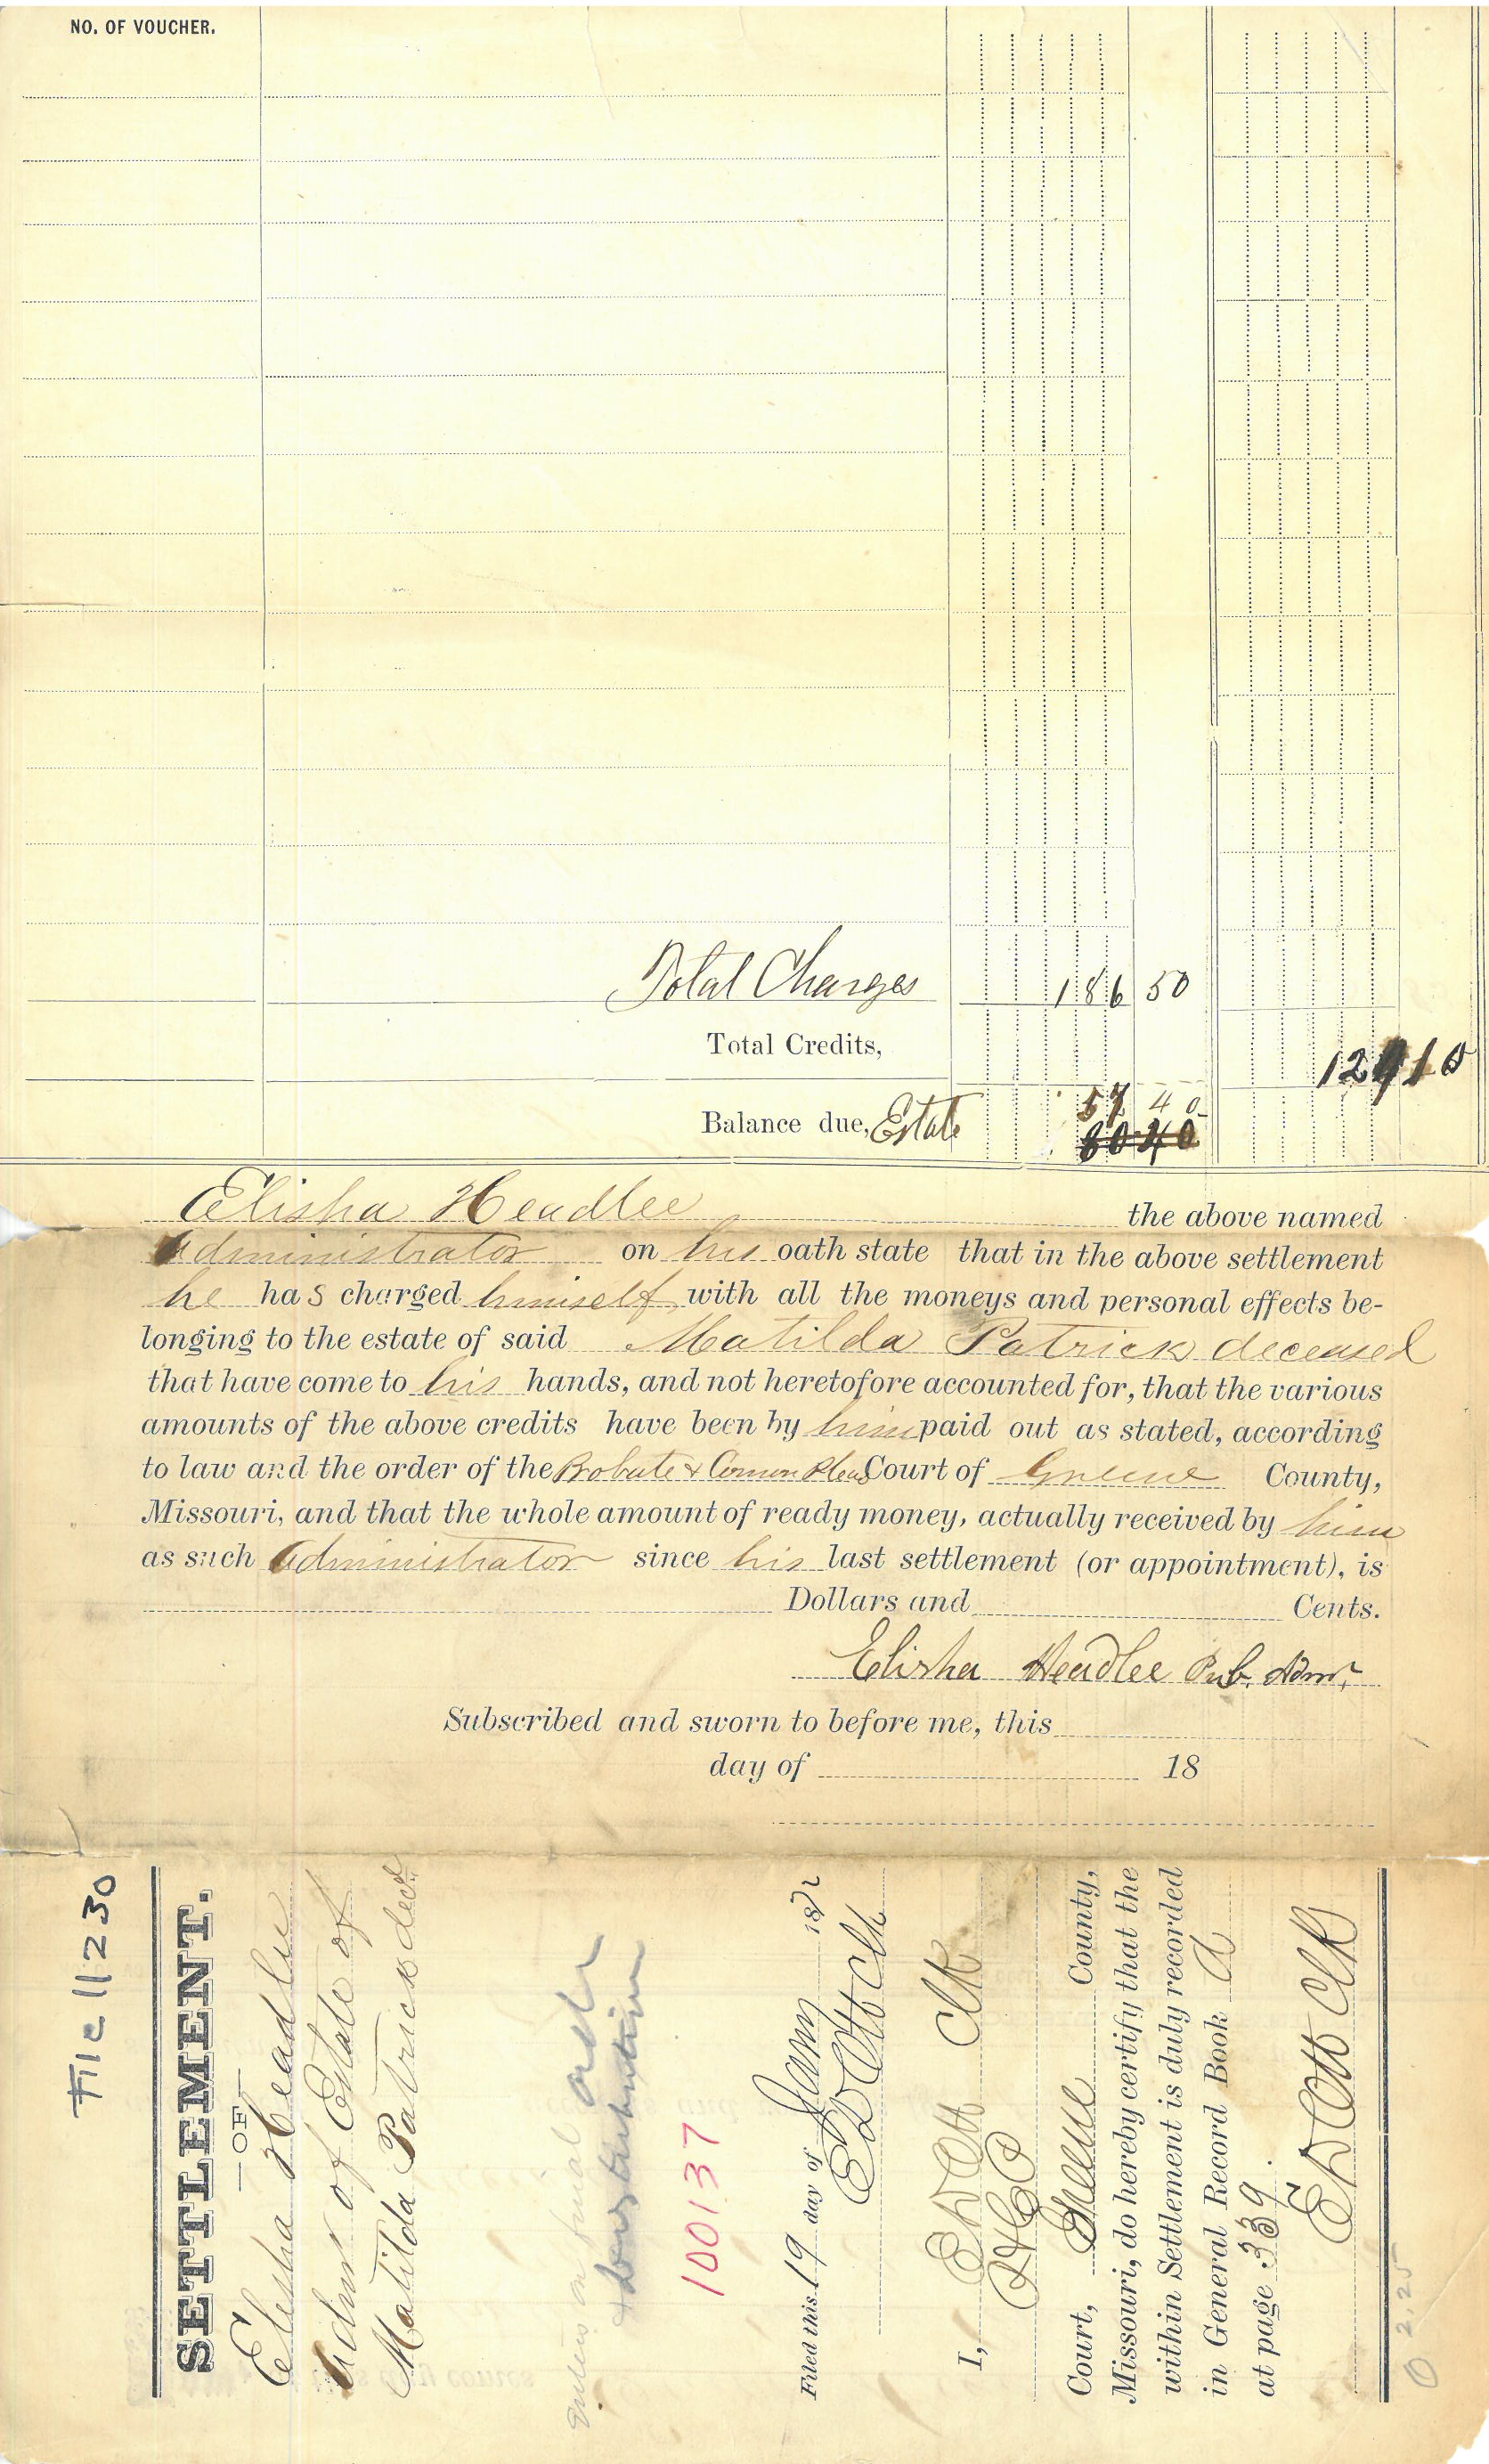 NO. OF VOUCHER.
Total Charges 186 50
Total Credits, 129 10
57 40
Balance due, Estate 80 40
Elisha Headlee the above named
Administrator on his oath state that in the above settlement
he has charged himself with all the moneys and personal effects be-
longing to the estate of said Matilda Patrick deceased
that have come to his hands, and not heretofore accounted for, that the various
amounts of the above credits have been by him paid out as stated, according
to law and the order of the Probate & Common Pleas Court of Greene County,
Missouri, and that the whole amount of ready money, actually received by him
as such Administrator since his last settlement (or appointment), is
Dollars and Cents.
Elisha Headlee Pub. Admr.
Subscribed and sworn to before me, this
day of 18
File 11230
SETTLEMENT.
—OF—
Elisha Headlee
Admr of Estate of
Matilda Patrick decd
final order
distribution
100137
Filed this 19 day of Jany 1872
E D Ott Clk
I, E D Ott Clk
P & C P
Court, Greene County,
Missouri, do hereby certify that the
within Settlement is duly recorded
in General Record Book A
at page 339.
E D Ott Clk
2.25